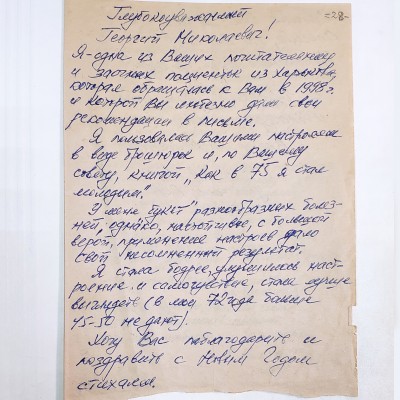 -28-
Глубокоуважаемый
Георгий Николаевич!
Я-одна из Ваших почитательниц
и заочных пациенток из Харькова,
которая обращалась к Вам в 1998 г.
и которой Вы любезно дали свои
рекомендации в письме.
Я пользовалась Вашими настроями
в виде брошюрок и, по Вашему
совету, книгой „Как в 75 я стал
молодым".
У меня "букет" разнообразных болез-
ней, однако, настойчивое, с большой
верой, применение настроев дало
свой несомненный результат.
Я стала бодрее, улучшилось наст-
роение и самочувствие, стала лучше
выглядеть (в мои 72 года больше
45-50 не дают).
Хочу Вас поблагодарить и
поздравить с Новым Годом
стихами.